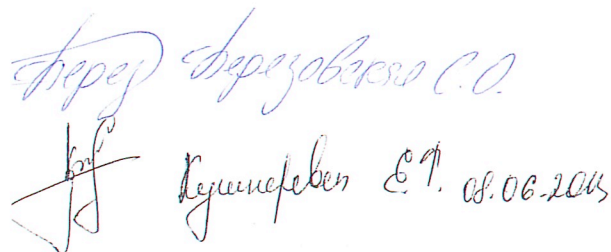 Берез Березовская С.О.
Кушнеревич Е.Р. 08.06.2015